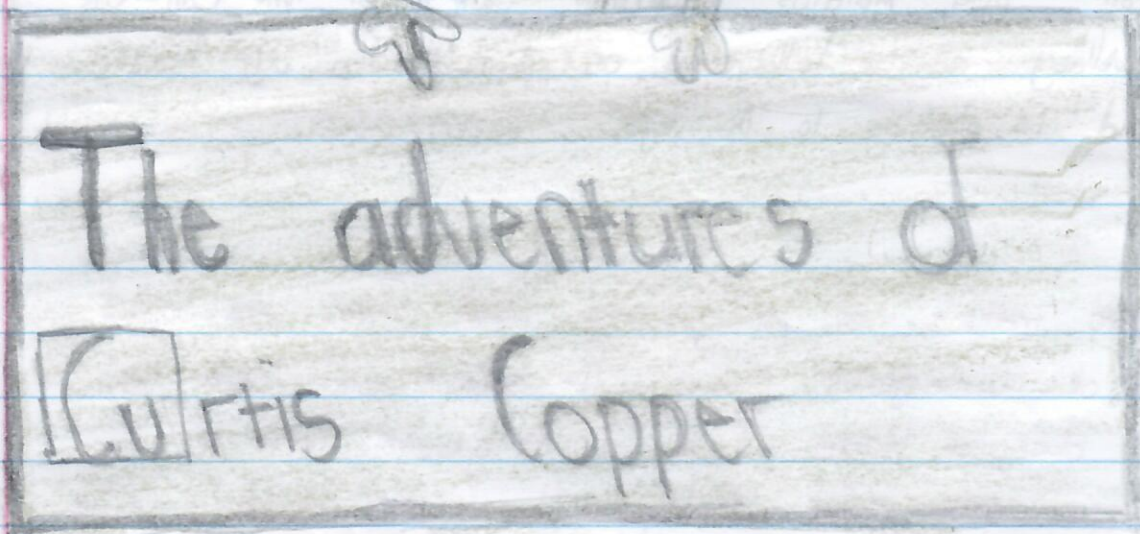 The adventures of
Curtis Copper